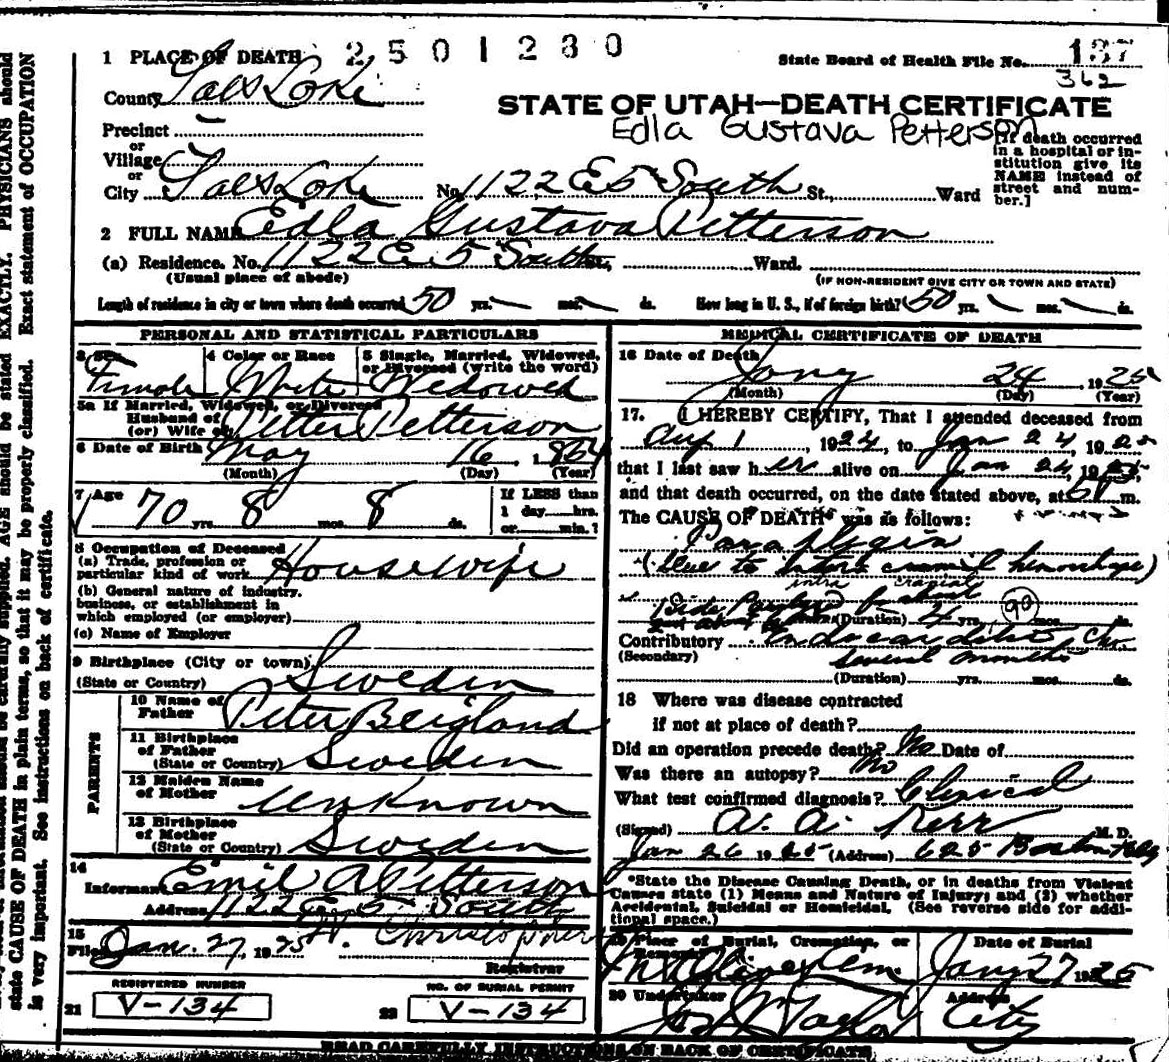 1 PLACE OF DEATH 2501230
State Board of Health File No. 137
362
County Salt Lake
STATE OF UTAH—DEATH CERTIFICATE
Edla Gustava Petterson
Precinct
or
Village
or
City Salt Lake No. 1122 E 5 South St., Ward
[If death occurred
in a hospital or in-
stitution give its
NAME instead of
street and num-
ber.]
2 FULL NAME Edla Gustava Petterson
(a) Residence. No. 1122 E. 5 South, Ward.
(Usual place of abode) (IF NON-RESIDENT GIVE CITY OR TOWN AND STATE)
Length of residence in city or town where death occurred 50 yrs. mos. ds. How long in U. S., if of foreign birth? 50 yrs. mos. ds.
PERSONAL AND STATISTICAL PARTICULARS
3 Sex Female
4 Color or Race White
5 Single, Married, Widowed,
or Divorced (write the word)
Widowed
5a If Married, Widowed, or Divorced
Husband of
(or) Wife of Petter Petterson
6 Date of Birth May 16, 1854
(Month) (Day) (Year)
7 Age 70 yrs. 8 mos. 8 ds.
If LESS than
1 day hrs.
or min.?
8 Occupation of Deceased
(a) Trade, profession or
particular kind of work Housewife
(b) General nature of industry,
business, or establishment in
which employed (or employer)
(c) Name of Employer
9 Birthplace (City or town)
(State or Country) Sweden
PARENTS
10 Name of
Father Peter Berglond
11 Birthplace
of Father
(State or Country) Sweden
12 Maiden Name
of Mother Unknown
13 Birthplace
of Mother
(State or Country) Sweden
14
Informant Emil A Petterson
Address 1122 E 5 South
15
Filed Jan. 27, 1925
Registrar
REGISTERED NUMBER
21 V-134
NO. OF BURIAL PERMIT
22 V-134
MEDICAL CERTIFICATE OF DEATH
16 Date of Death Jany 24, 1925
(Month) (Day) (Year)
17. I HEREBY CERTIFY, That I attended deceased from
Aug 1, 1924, to Jan 24, 1925
that I last saw her alive on Jan 24, 1925,
and that death occurred, on the date stated above, at m.
The CAUSE OF DEATH* was as follows:
Paraplegia
(Due to intra cranial hemorrhage)
intra cranial
(Duration) yrs. 90 ds.
Contributory Endocarditis, Chr.
(Secondary) several months
(Duration) yrs. mos. ds.
18 Where was disease contracted
if not at place of death?
Did an operation precede death? No Date of
Was there an autopsy? No
What test confirmed diagnosis? Clinical
(Signed) A. A. Kerr M. D.
Jan 26 1925 (Address) 625 Boston Bldg
*State the Disease Causing Death, or in deaths from Violent
Causes state (1) Means and Nature of Injury; and (2) whether
Accidental, Suicidal or Homicidal. (See reverse side for addi-
tional space.)
19 Place of Burial, Cremation, or
Removal
Mt Olivet Cem.
Date of Burial
Jany 27 1925
20 Undertaker
Jos Wm Taylor
Address
City
READ CAREFULLY INSTRUCTIONS ON BACK OF CERTIFICATE
EXACTLY. PHYSICIANS should
state CAUSE OF DEATH in plain terms, so that it may be properly classified. Exact statement of OCCUPATION
is very important. See instructions on back of certificate.